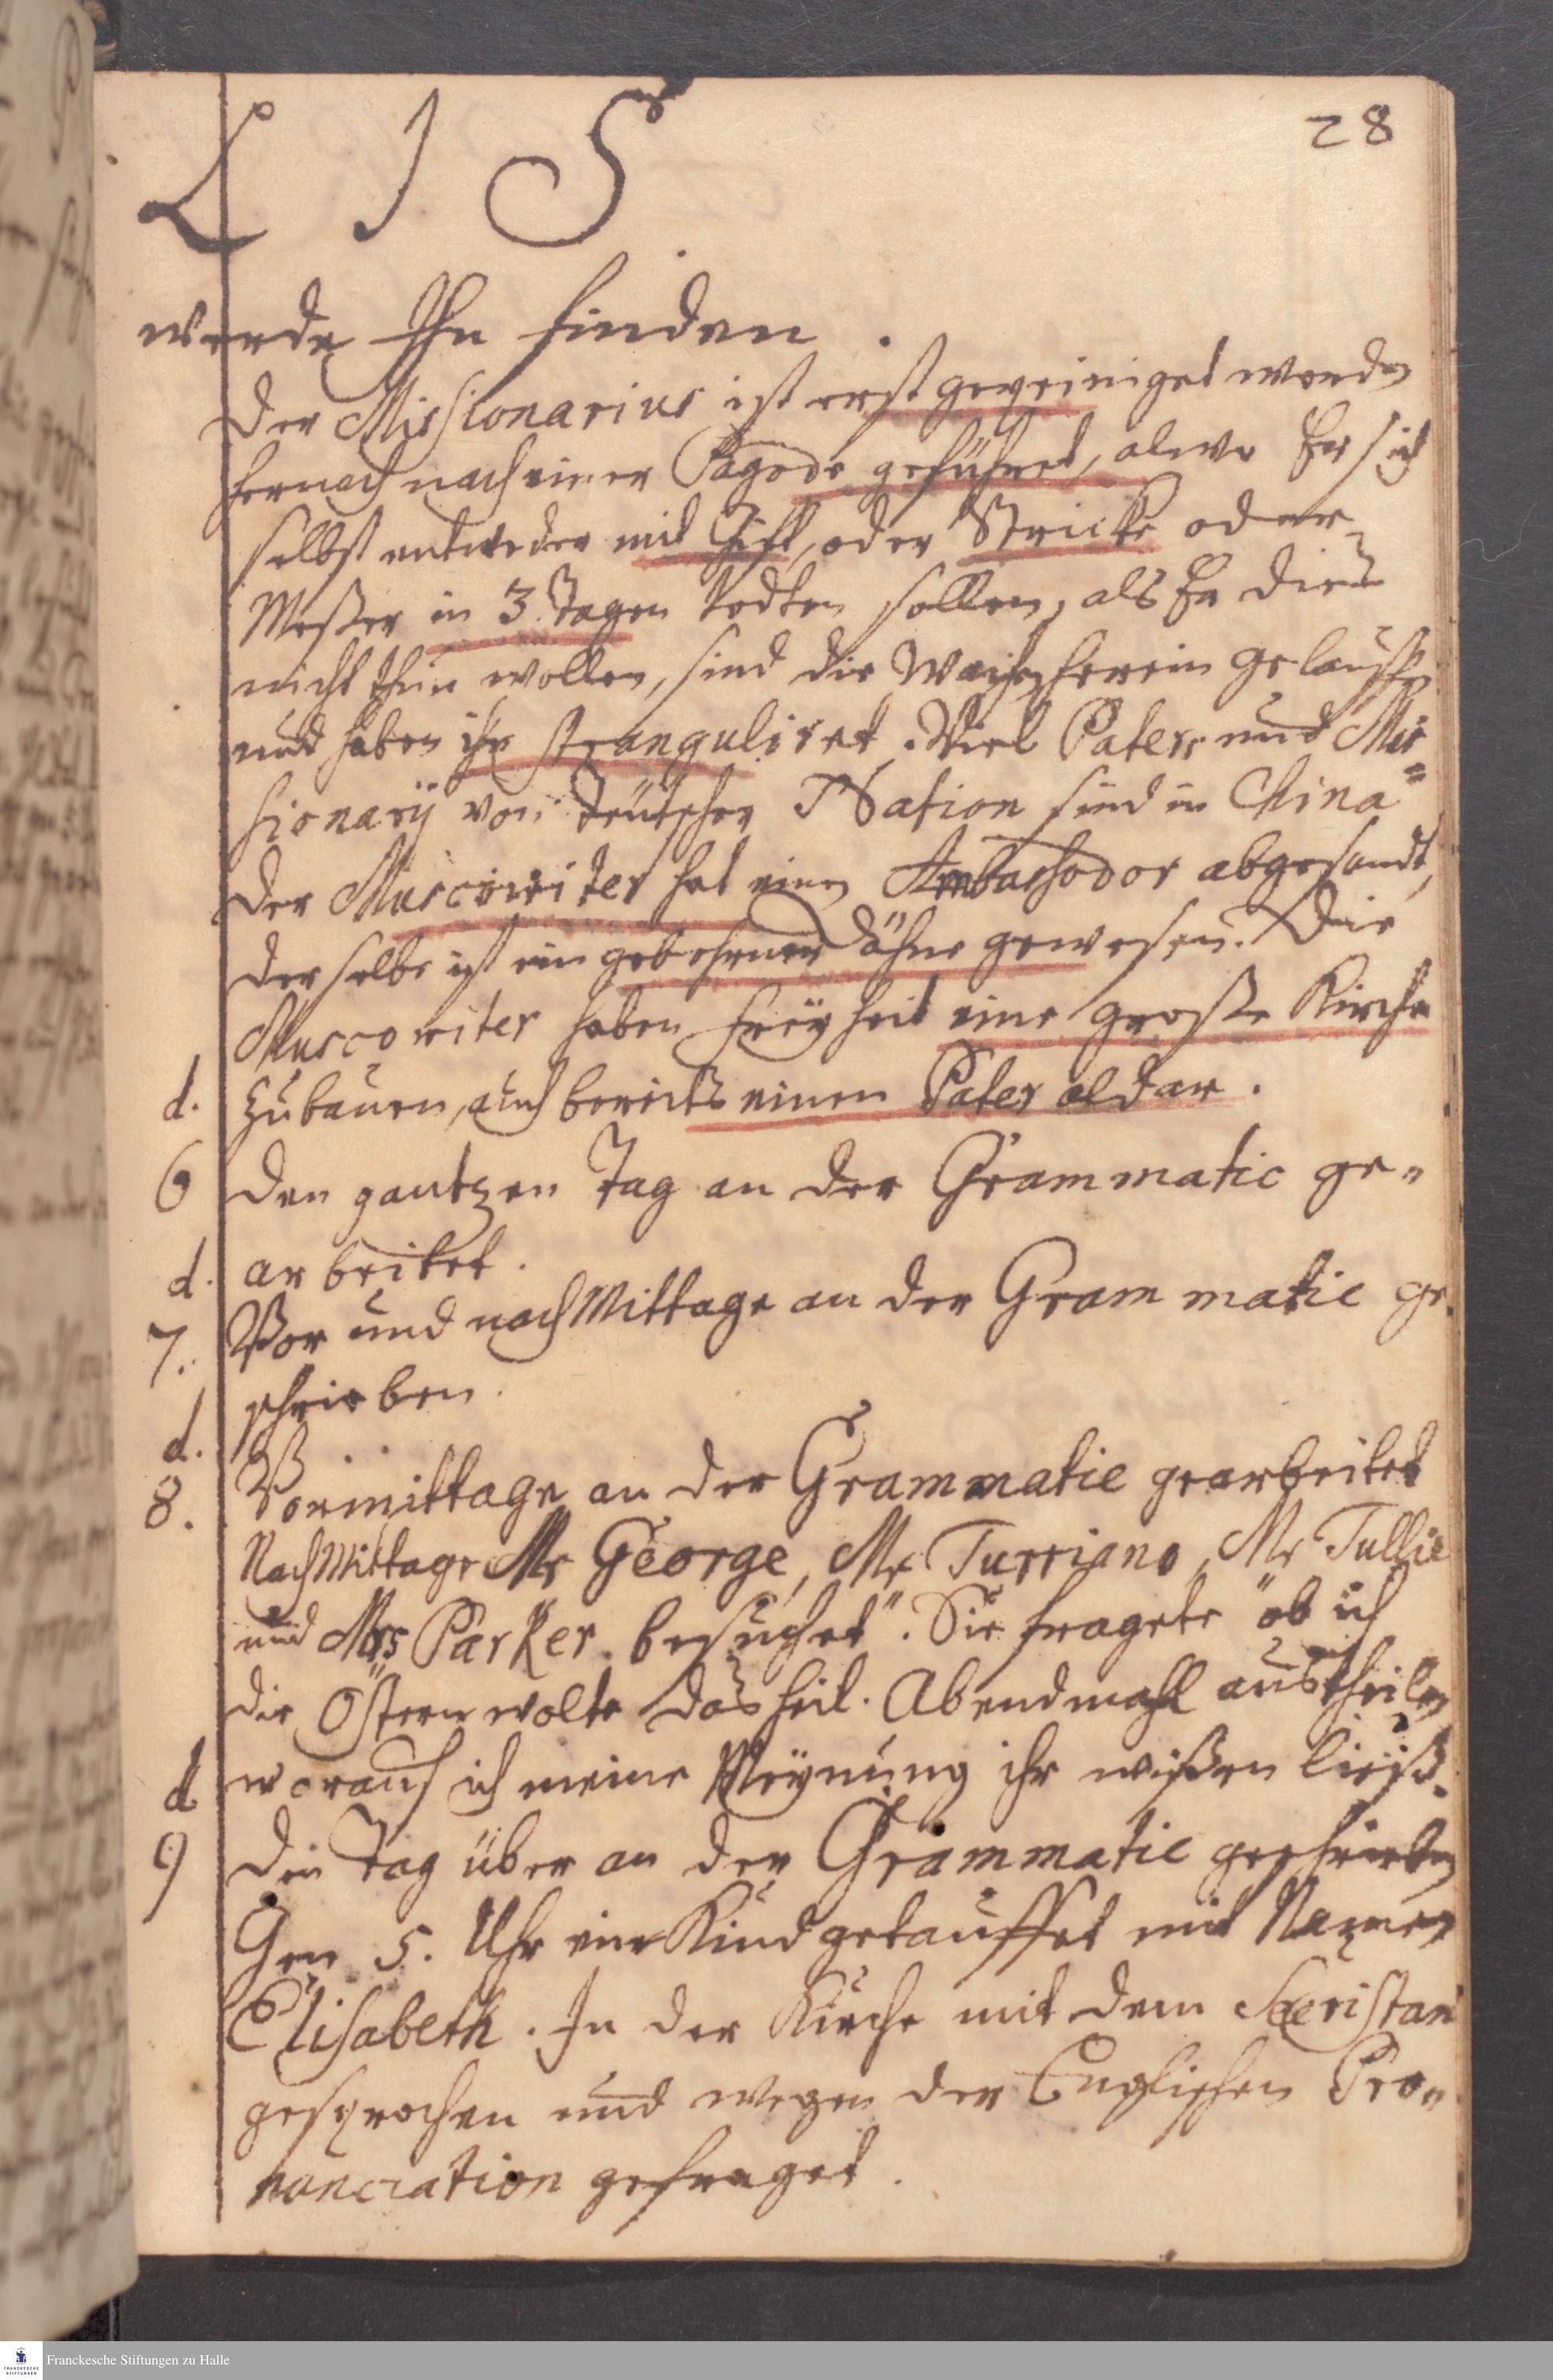 28
L I S
werde Ihn finden.
Der Missionarius ist erst gepeiniget worden
hernach nach einer Pagode geführet, alwo Er sich
selbst entweder mit Gift, oder Stricke oder
Meßer in 3. Tagen todten sollen, als Er dies
nicht thun wollen, sind die herein gelauffen
und haben ihn stranguliret. Viel Paters und Mis=
sionarij von teutscher Nation sind in China
Der Muscowiter hat einen Ambassodor abgesandt,
derselbe ist ein gebohrner Dähne gewesen. Die
Muscowiter haben Freyheit eine große Kirche
d. zu bauen, auch bereits einen Pater aldar.
6 Den gantzen Tag an der Grammatic ge=
d. arbeitet.
7. Vor und nach Mittage an der Grammatic ge=
schrieben.
d.
8. Vormittage an der Grammatic gearbeitet
Nach Mittage Mr George, Mr Turriano, Mr Tullie
und Mrs Parker besuchet. Sie fragete ob ich
die Ostern wolte das heil. Abendmahl austheilen
d worauf ich meine Meynung ihr wißen ließ.
9 Den Tag über an der Grammatic geschrieben
Gen 5. Uhr ein Kind getauffet mit Namen
Elisabeth. In der Kirche mit dem Sacristan
gesprochen und wegen der Englischen Pro=
nunciation gefraget.
Franckesche Stiftungen zu Halle